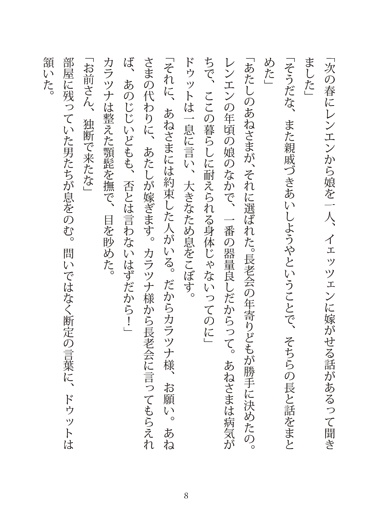 「次の春にレンエンから娘を一人、イェッツェンに嫁がせる話があるって聞き
ました」
「そうだな、また親戚づきあいしようやということで、そちらの長と話をまと
めた」
「あたしのあねさまが、それに選ばれた。長老会の年寄りどもが勝手に決めたの。
レンエンの年頃の娘のなかで、一番の器量良しだからって。あねさまは病気が
ちで、ここの暮らしに耐えられる身体じゃないってのに」
ドゥットは一息に言い、大きなため息をこぼす。
「それに、あねさまには約束した人がいる。だからカラツナ様、お願い。あね
さまの代わりに、あたしが嫁ぎます。カラツナ様から長老会に言ってもらえれ
ば、あのじじいどもも、否とは言わないはずだから！」
カラツナは整えた顎髭を撫で、目を眇めた。
「お前さん、独断で来たな」
部屋に残っていた男たちが息をのむ。問いではなく断定の言葉に、ドゥットは
頷いた。
8